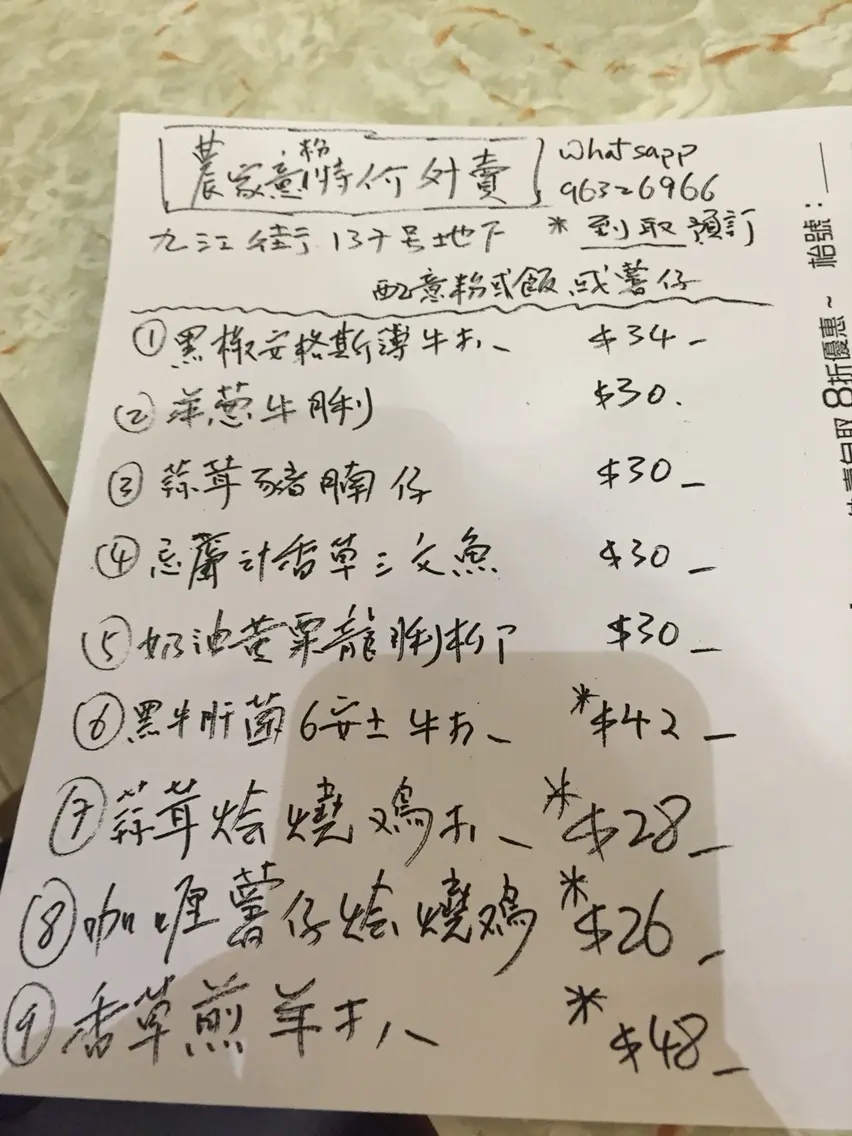 農家意粉特价外賣
whatsapp
96326966
九江街137号地下 *到取預訂
配意粉或飯或薯仔
① 黑椒安格斯薄牛扒 $34-
② 洋葱牛脷 $30.
③ 蒜茸豬腩仔 $30-
④ 忌廉汁香草三文魚 $30-
⑤ 奶油黄粟龍脷柳 $30-
⑥ 黑牛肝菌6安士牛扒 *$42-
⑦ 蒜茸烩燒鸡扒 *$28-
⑧ 咖喱薯仔烩燒鸡 *$26-
⑨ 香草煎羊扒 *$48-
枱號：
8折優惠~